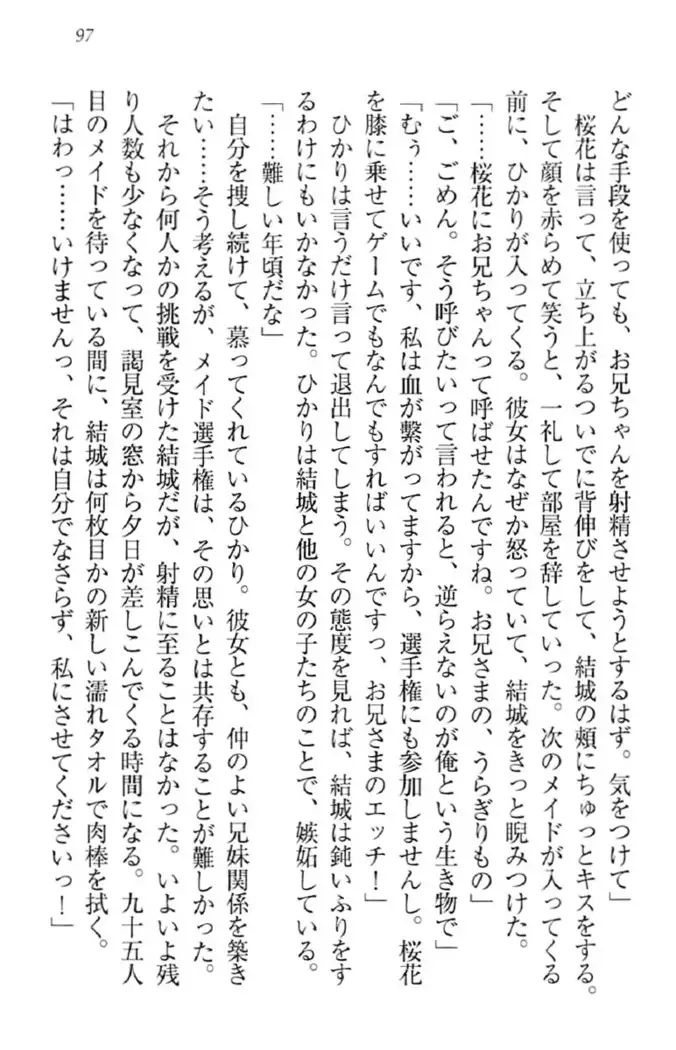 97
どんな手段を使っても、お兄ちゃんを射精させようとするはず。気をつけて」
桜花は言って、立ち上がるついでに背伸びをして、結城の頬にちゅっとキスをする。
そして顔を赤らめて笑うと、一礼して部屋を辞していった。次のメイドが入ってくる
前に、ひかりが入ってくる。彼女はなぜか怒っていて、結城をきっと睨みつけた。
「……桜花にお兄ちゃんって呼ばせたんですね。お兄さまの、うらぎりもの」
「ご、ごめん。そう呼びたいって言われると、逆らえないのが俺という生き物で」
「むぅ……いいです、私は血が繋がってますから、選手権にも参加しませんし。桜花
を膝に乗せてゲームでもなんでもすればいいんですっ、お兄さまのエッチ！」
ひかりは言うだけ言って退出してしまう。その態度を見れば、結城は鈍いふりをす
るわけにもいかなかった。ひかりは結城と他の女の子たちのことで、嫉妬している。
「……難しい年頃だな」
自分を捜し続けて、慕ってくれているひかり。彼女とも、仲のよい兄妹関係を築き
たい……そう考えるが、メイド選手権は、その思いとは共存することが難しかった。
それから何人かの挑戦を受けた結城だが、射精に至ることはなかった。いよいよ残
り人数も少なくなって、謁見室の窓から夕日が差しこんでくる時間になる。九十五人
目のメイドを待っている間に、結城は何枚目かの新しい濡れタオルで肉棒を拭く。
「はわっ……いけませんっ、それは自分でなさらず、私にさせてくださいっ！」